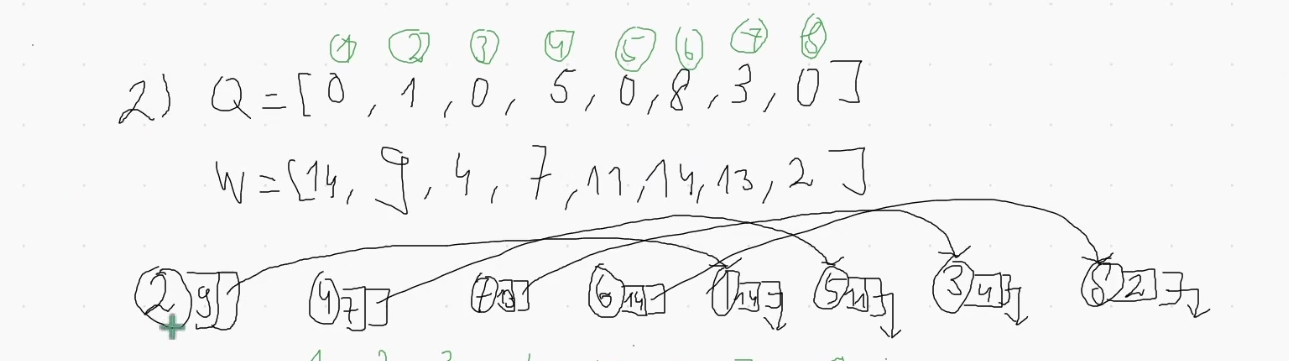 1 2 3 4 5 6 7 8
2) Q = [0, 1, 0, 5, 0, 8, 3, 0]
W = [14, 9, 4, 7, 11, 14, 13, 2]
2 9 4 7 7 13 6 14 1 14 5 11 3 4 8 2